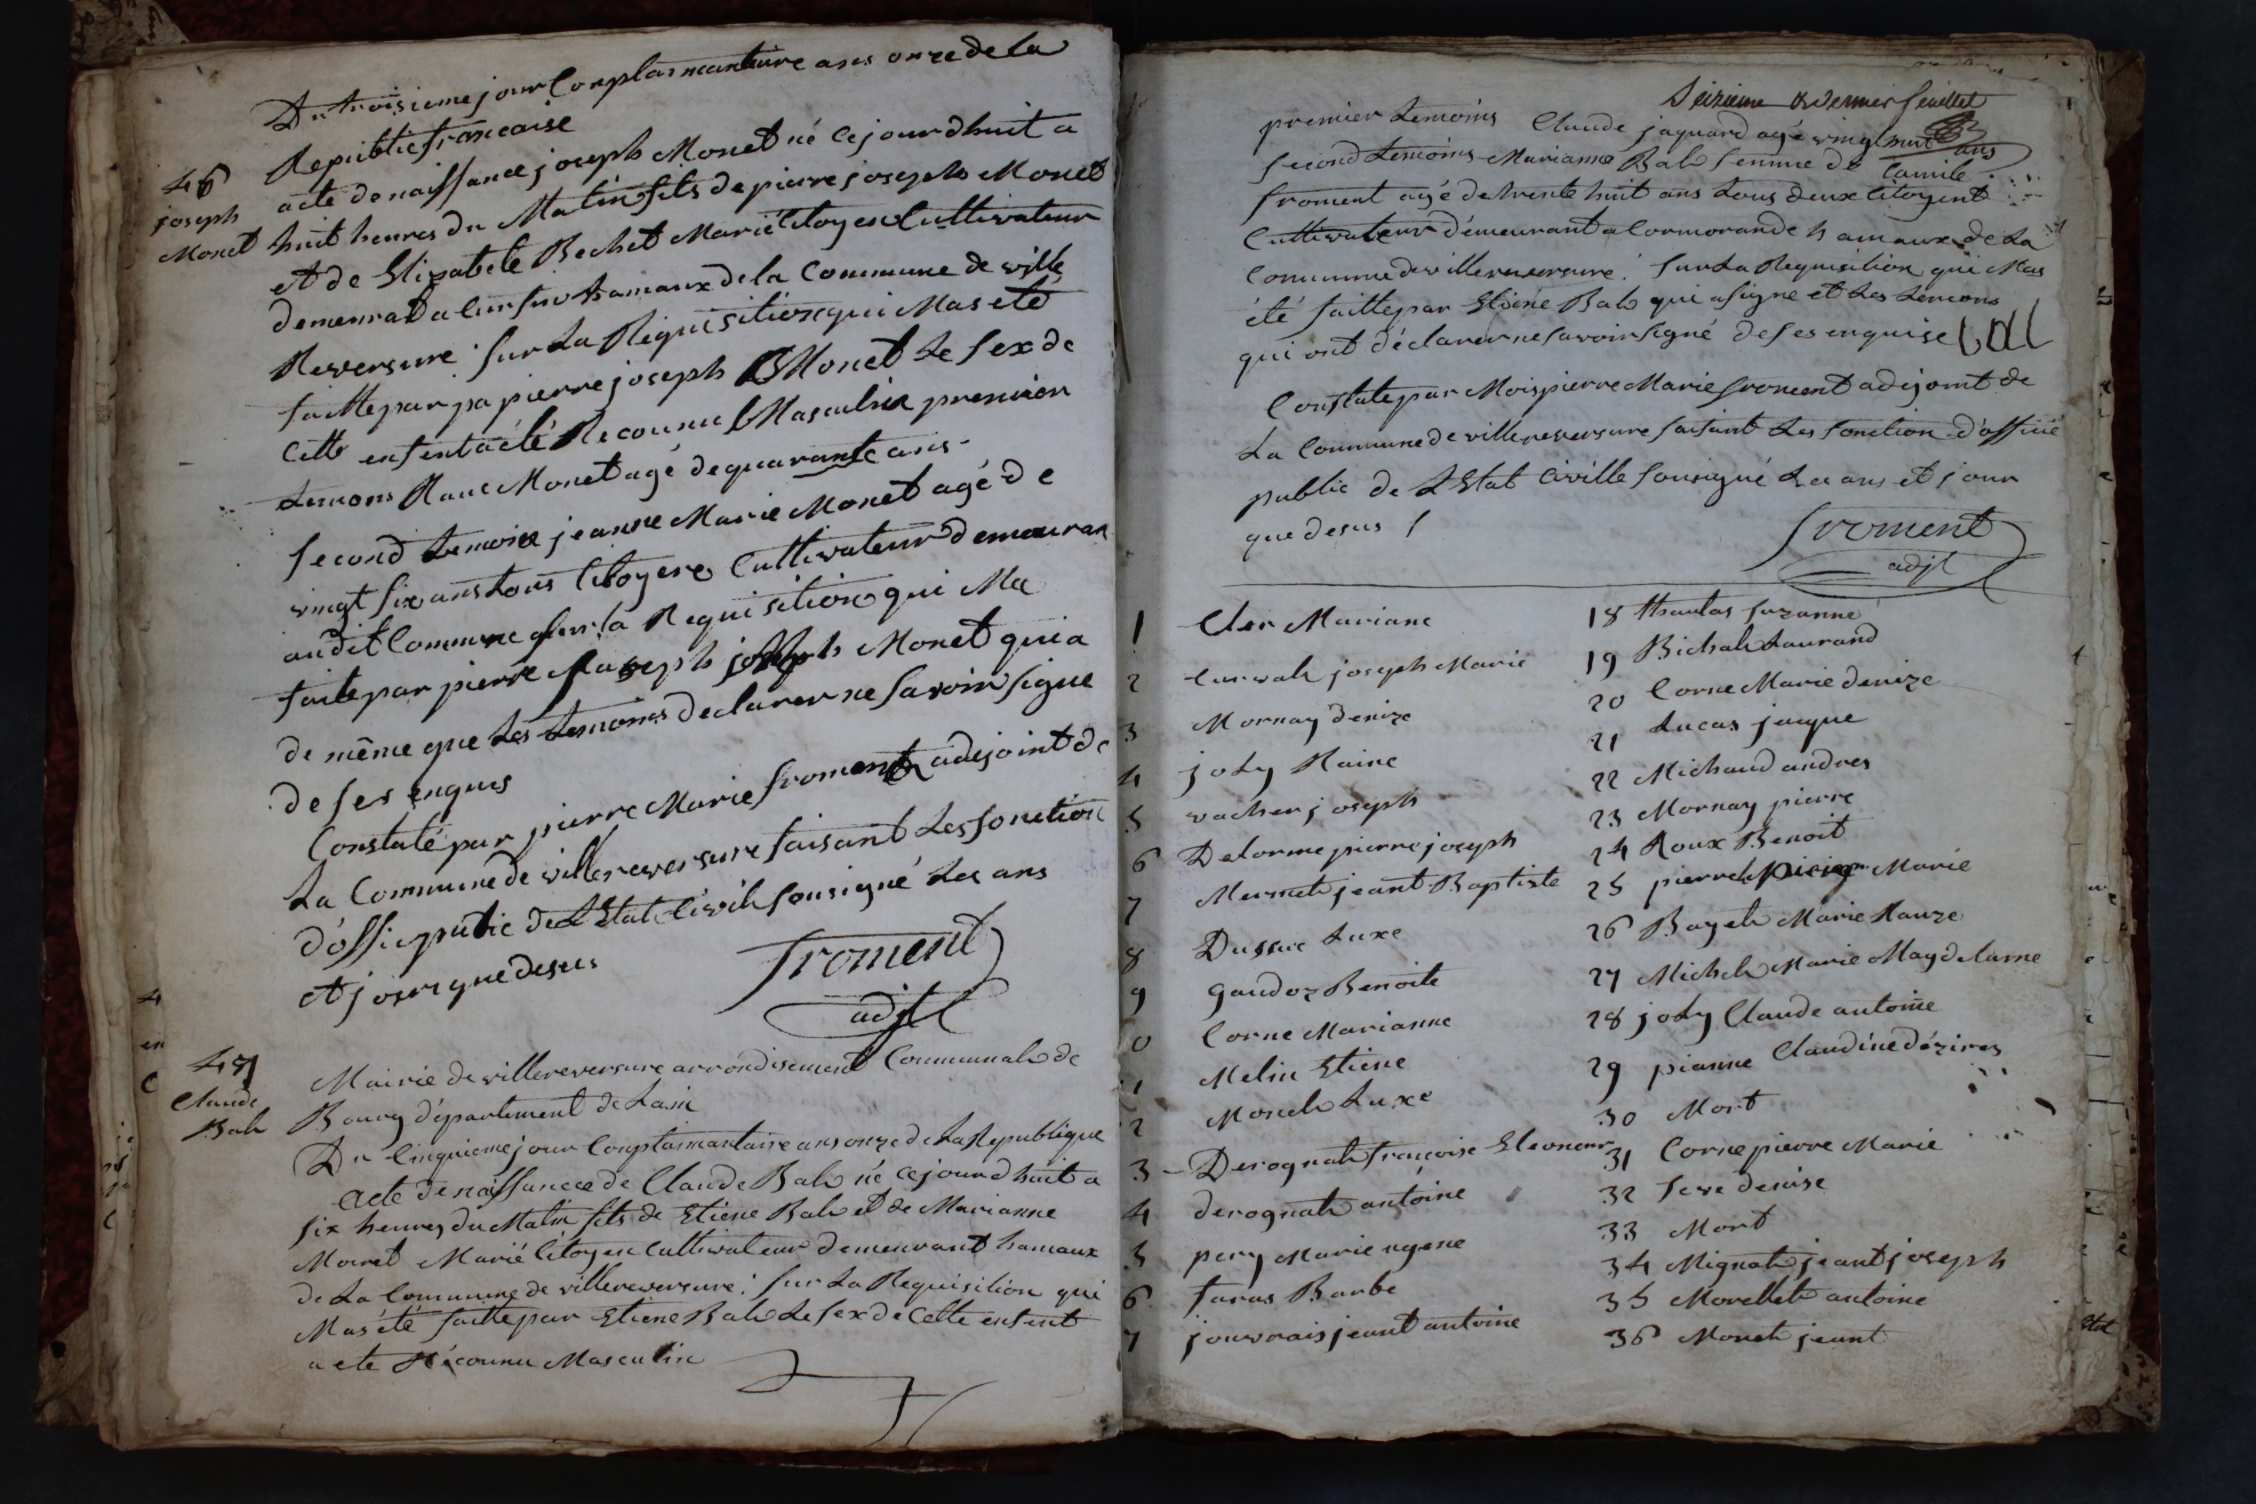 Du troisieme jour Complaimantaire ans onze de la
Republic francaise
46
joseph
Monet
acte de naissance joseph Monet né cejourdhuit a
huit heures du Matin fils de pierre joseph Monet
et de Elizabete Bechet Marié Citoyen Cultivateur
demeurat a hamaux de la Commune de ville
Reversure sur La Requisition qui Mas eté
faitte par pa pierre joseph Monet Le sex de
Cette enfent a été Reconnu Masculin premier
temons Monet agé de quarante ans
second temoin jeanne Marie Monet agé de
vingt six ans tous Citoyens Cultivateur demeuran
audit Commune sur la Requisition qui Ma
faite par pierre joseph Monet qui a
de même que Les temoins declarer ne savoir signe
de ses enquis
Constaté par pierre Marie froment adejoint de
La Commune de villereversure faisant Les fonction
d'offic public de L Etat Civil sousigné Les ans
et jour que desus
froment
adjt
47
Claude
Bal
Mairie de villereversure arrondisement Communal de
Bourg département de Lain
Du Cinquieme jour Complaimantaire ans onze de La Republique
acte de naissance de Claude Bal né cejourdhuit a
six heures du Matin fils de Etiene Bal et de Marianne
Moiret Marié Citoyen Cultivateur demeurant hamaux
de La Commune de villereversure : sur La Requisition qui
Mas été faitte par Etiene Bal Le sex de Cette enfent
a ete Réconnu Masculin
Seizieme & dernier feuillet
premier temoins Claude jaquard agé vingt huit ans
second temoins Marianne Bal femme de Camile
froment agé de trente huit ans tous deux Citoyent
Cultivateur démeurant a Cormorande hamaux de La
Comumne de villereversure : sur La Requisition qui Mas
été faitte par Etiéne Bal qui a signe et Les temons
qui ont déclarer ne savoir signé de ses enquise
Constate par Mois pierre Marie froment adejoint de
La Commune de villereversure faisant Les fonction d'officié
public de L Etat Civille sousigné Les ans et jour
que desus
froment
adjt
1 Cler Mariane
2 joseph Marie
3 Mornay denize
4 joly Raine
5 vacher joseph
6 Delorme pierre joseph
7 Mermet jeant Baptiste
8 Dussuc Luxe
9 gaudoz Benoite
0 Corne Marianne
1 Melin Etiene
2 Monet Luxe
3 Derognat francoise Eleonour
4 derognat antoine
5 pery Marie ugene
6 faras Barbe
7 jouvrais jeant antoine
18 suzanne
19 Bichat Laurand
20 Corne Marie denize
21 Lucas jaque
22 Michaud andres
23 Mornay pierre
24 Roux Benoit
25 pierre Marie
26 Bayet Marie
27 Michel Marie Maydelaine
28 joly Claude antoine
29 pianne Claudine dézirez
30 Mort
31 Corne pierre Marie
32 denise
33 Mort
34 Mignat jeant joseph
35 Morellet antoine
36 Monet jeant